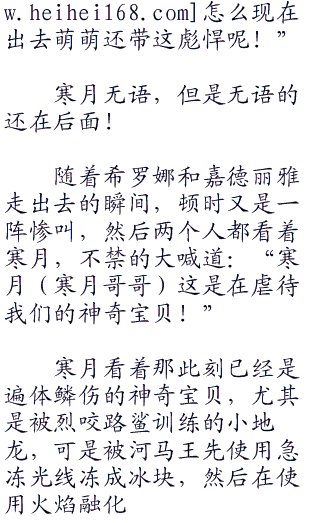 w.heihei168.com]怎么现在
出去萌萌还带这彪悍呢！”
寒月无语，但是无语的
还在后面！
随着希罗娜和嘉德丽雅
走出去的瞬间，顿时又是一
阵惨叫，然后两个人都看着
寒月，不禁的大喊道：“寒
月（寒月哥哥）这是在虐待
我们的神奇宝贝！”
寒月看着那此刻已经是
遍体鳞伤的神奇宝贝，尤其
是被烈咬路鲨训练的小地
龙，可是被河马王先使用急
冻光线冻成冰块，然后在使
用火焰融化